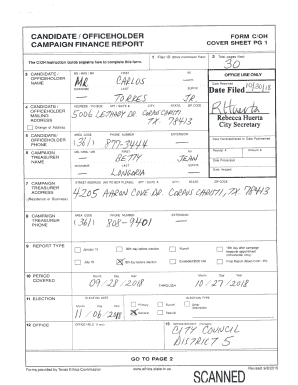 CANDIDATE / OFFICEHOLDER
CAMPAIGN FINANCE REPORT
FORM C/OH
COVER SHEET PG 1
The C/OH Instruction Guide explains how to complete this form.
1 Filer ID
2 Total pages filed:
30
3 CANDIDATE / OFFICEHOLDER NAME
MS / MRS / MR FIRST MI
MR CARLOS
NICKNAME LAST SUFFIX
TORRES JR.
OFFICE USE ONLY
Date Received
Date Filed 10/30/18
R Huerta
Rebecca Huerta
City Secretary
4 CANDIDATE / OFFICEHOLDER MAILING ADDRESS
Change of Address
ADDRESS / PO BOX; APT / SUITE #; CITY; STATE; ZIP CODE
5006 LETHABY DR. CORPUS CHRISTI,
TX. 78413
5 CANDIDATE / OFFICEHOLDER PHONE
AREA CODE PHONE NUMBER EXTENSION
(361) 877-3444
Receipt # Amount $
Date Processed
Date Imaged
6 CAMPAIGN TREASURER NAME
MS / MRS / MR FIRST MI
BETTY JEAN
NICKNAME LAST SUFFIX
LONGORIA
7 CAMPAIGN TREASURER ADDRESS
(Residence or Business)
STREET ADDRESS (NO PO BOX PLEASE); APT / SUITE #; CITY; STATE; ZIP CODE
4205 AARON COVE DR. CORPUS CHRISTI, TX, 78413
8 CAMPAIGN TREASURER PHONE
AREA CODE PHONE NUMBER EXTENSION
(361) 808-9401
9 REPORT TYPE
January 15
30th day before election
Runoff
15th day after campaign treasurer appointment (Officeholder Only)
July 15
8th day before election
Final Report
10 PERIOD COVERED
Month Day Year
09/28/2018
THROUGH
Month Day Year
10/27/2018
11 ELECTION
ELECTION DATE
Month Day Year
11/06/2018
ELECTION TYPE
Primary
Runoff
Other
General
Special
12 OFFICE
OFFICE HELD
13 OFFICE SOUGHT
CITY COUNCIL
DISTRICT 5
GO TO PAGE 2
Forms provided by Texas Ethics Commission
www.ethics.state.tx.us
SCANNED